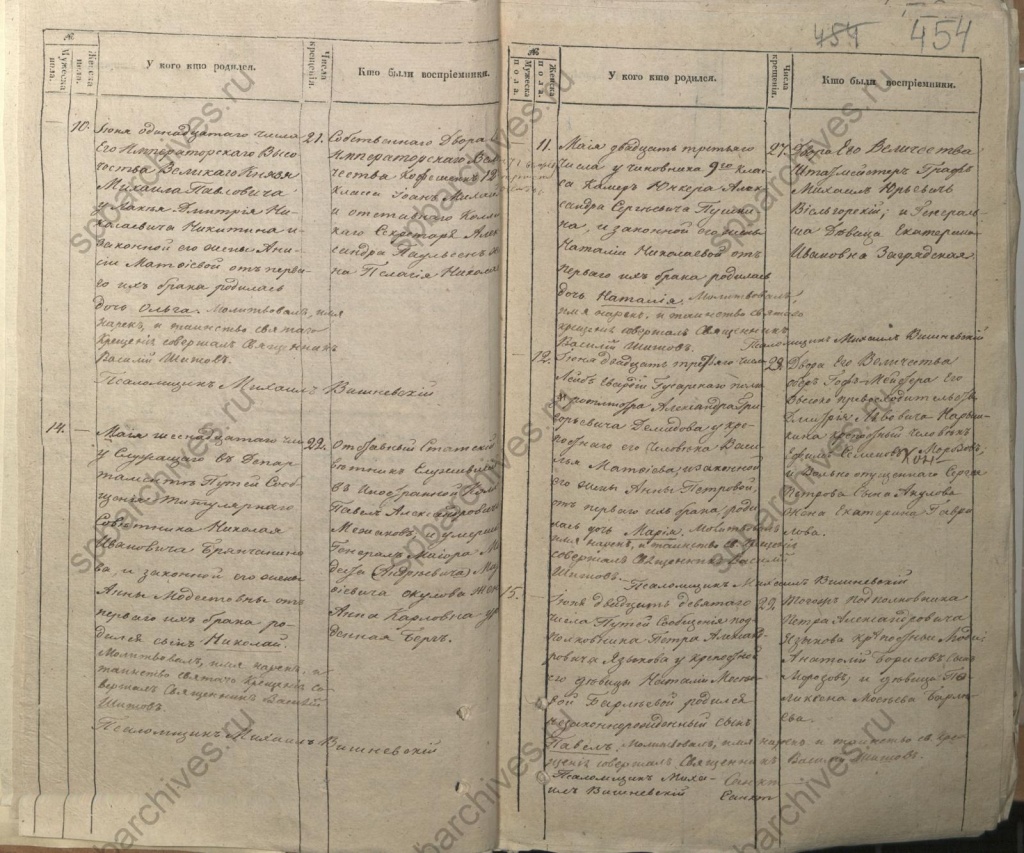 484 454
№
Мужеска пола.
Женска пола.
У кого кто родился.
Числа крещенія.
Кто были воспріемники.
10.
Іюня одинадцатаго числа
Его Императорскаго Высо-
чества Великаго Князя
Михаила Павловича
у лакея Дмитрія Ни-
колаевича Никитина и
законной его жены Ани-
сіи Матвіевой отъ перва-
го ихъ брака родилась
дочь Ольга. Молитвовалъ, имя
нарекъ, и таинство святаго
крещенія совершалъ Священникъ
Василій Шитовъ.
Псаломщикъ Михаилъ Вишневскій
21.
Собственнаго Двора
Императорскаго Вели-
чества Кофешенкъ 12
класса Іоанъ
и отставнаго Колле-
жскаго Секретаря Алек-
сандра
на Пелагія
14.
Маія шеснадцатаго числа
у Служащаго въ Депар-
таментѣ Путей Сооб-
щенія Титулярнаго
Совѣтника Николая
Ивановича Брянчанино-
ва, и законной его жены
Анны Модестовны отъ
перваго ихъ брака ро-
дился сынъ Николай.
Молитвовалъ, имя нарекъ, и
таинство святаго крещенія со-
вершалъ Священникъ Василій
Шитовъ.
Псаломщикъ Михаилъ Вишневскій
22.
Отставный Статскій
Совѣтникъ Служившій
въ Иностранной
Павелъ Александровичъ
Межаковъ, и умершаго
Генерала Маіора Мо-
деста (Андреевича) Ма-
твіевича Окулова Жена
Анна Карловна уро-
жденная Бергъ.
№
Мужеска пола.
Женска пола.
У кого кто родился.
Числа крещенія.
Кто были воспріемники.
11.
Маія двадцать третьяго
числа у чиновника 9го клас-
са Камеръ Юнкера Алек-
сандра Сергѣевича Пушки-
на, и законной его жены
Наталіи Николаевой отъ
перваго ихъ брака родилась
дочь Наталія. Молитвовалъ,
имя нарекъ, и таинство святаго
крещенія совершалъ Священникъ
Василій Шитовъ. Псаломщикъ Михаилъ Вишневскій
27.
Двора Его Величества
Шталмейстеръ Графъ
Михаилъ Юрьевичъ
Віельгорскій; и Генераль-
ша Дѣвица Екатерина
Ивановна Загряжская
12.
Іюня двадцать третьяго числа
Лейбъ Гвардіи Гусарскаго полка
ротмистра Александра Гри-
горьевича Демидова у кре-
постнаго его Человѣка Васи-
лья Матвіева и законной
его жены Анны Петровой
отъ перваго ихъ брака роди-
лась дочь Марія. Молитвовалъ
имя нарекъ, и таинство св. крещенія
совершалъ Священникъ Василій
Шитовъ. Псаломщикъ Михаилъ Вишневскій
29.
Двора Его Величества
оберъ Гофъ-Мейстера Его
Высоко превосходительства
Дмитрія Львовича Нарыш-
кина крѣпостный человѣкъ
Ефимъ Семеновъ Морозовъ;
и вольно опущеннаго Сергѣя
Петрова Сына Акулова
Жена Екатерина Гаври-
лова.
15.
Іюня двадцать девятаго
числа Путей Сообщенія под-
полковника Петра Александ-
ровича Языкова у крепостной
его дѣвицы Наталіи
вой родился
незаконнорожденный сынъ
Павелъ. Молитвовалъ, имя нарекъ и таинство св. кре-
щенія совершалъ Священникъ Василій Шитовъ.
Псаломщикъ Миха-
илъ Вишневскій
Санкт
Санкт
29.
Тогожъ подполковника
Петра Александровича
Языкова крѣпостныя Люди:
Анатолій Борисовъ Сынъ
Морозовъ; и дѣвица
spbarchives.ru
spbarchives.ru
spbarchives.ru
spbarchives.ru
spbarchives.ru
spbarchives.ru